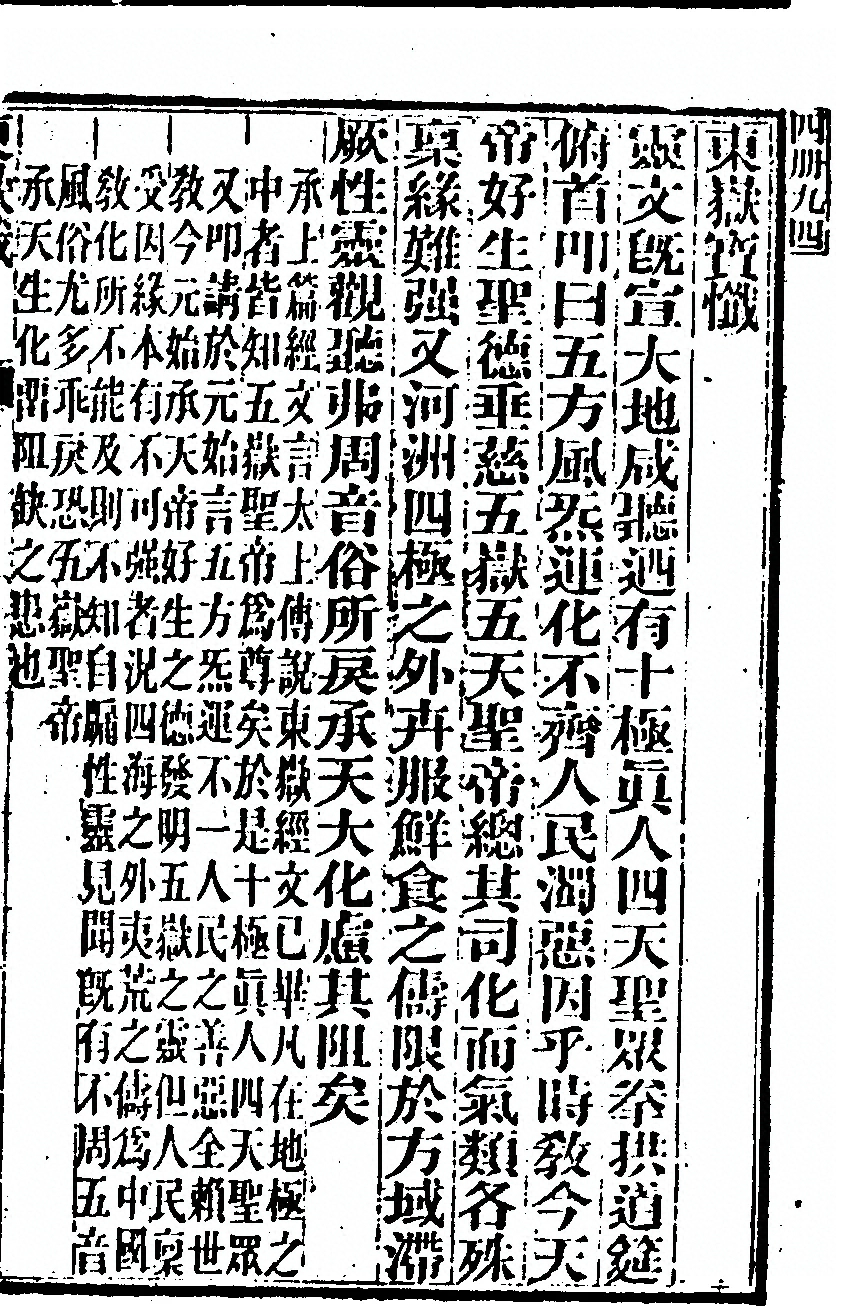 四冊九四
東嶽寶懺
靈文旣宣大地咸聽迺有十極眞人四天聖眾奉拱道筵
俯首叩曰五方風炁運化不齊人民濁惡因乎時敎今天
帝好生聖德垂慈五嶽五天聖帝總其司化而氣類各殊
稟緣難强又河洲四極之外卉服鮮食之儔限於方域滯
厥性靈觀聽弗周音俗所戾承天大化慮其阻矣
承上篇經文言太上傳說東嶽經文已畢凡在地極之
中者皆知五嶽聖帝爲尊矣於是十極眞人四天聖眾
又叩請於元始言五方炁運不一人民之善惡全賴世
敎今元始承天帝好生之德發明五嶽之靈但人民稟
受因緣本有不可强者况四海之外夷荒之儔爲中國
敎化所不能及則不知自牖性靈見聞旣有不周五音
風俗尤多乖戾恐五嶽聖帝
承天生化沼阻缺之患也